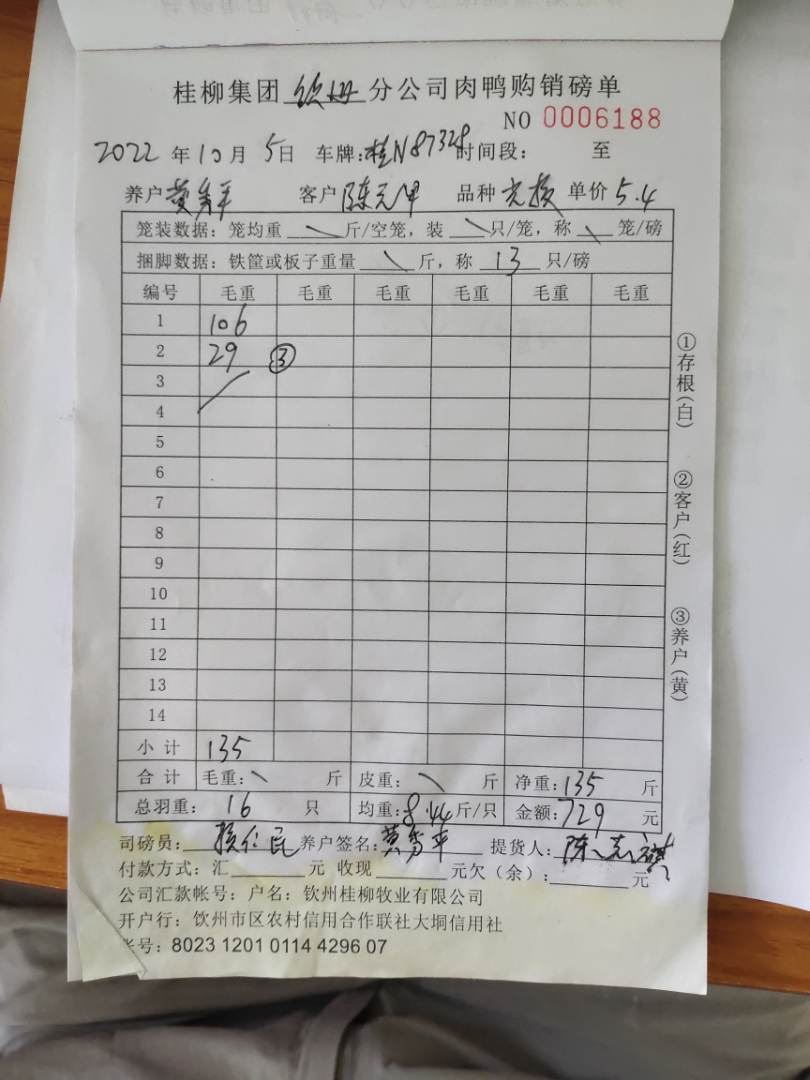 桂柳集团 钦州 分公司肉鸭购销磅单
NO 0006188
2022 年 10 月 5 日 车牌:桂N87328 时间段: 至
养户 黄秀平 客户 陈元甲 品种 单价 5.4
笼装数据:笼均重 \ 斤/空笼,装 \ 只/笼,称 \ 笼/磅
捆脚数据:铁筐或板子重量 \ 斤,称 13 只/磅
编号 毛重 毛重 毛重 毛重 毛重 毛重
1 106
2 29 ③
3
4
5
6
7
8
9
10
11
12
13
14
小计 135
合计 毛重:\ 斤 皮重:\ 斤 净重:135 斤
总羽重: 16 只 均重:8.44 斤/只 金额:729 元
司磅员: 养户签名:黄秀平 提货人:
付款方式:汇 元 收现 元欠(余): 元
公司汇款帐号:户名:钦州桂柳牧业有限公司
开户行:钦州市区农村信用合作联社大垌信用社
账号:8023 1201 0114 4296 07
①存根(白)
②客户(红)
③养户(黄)